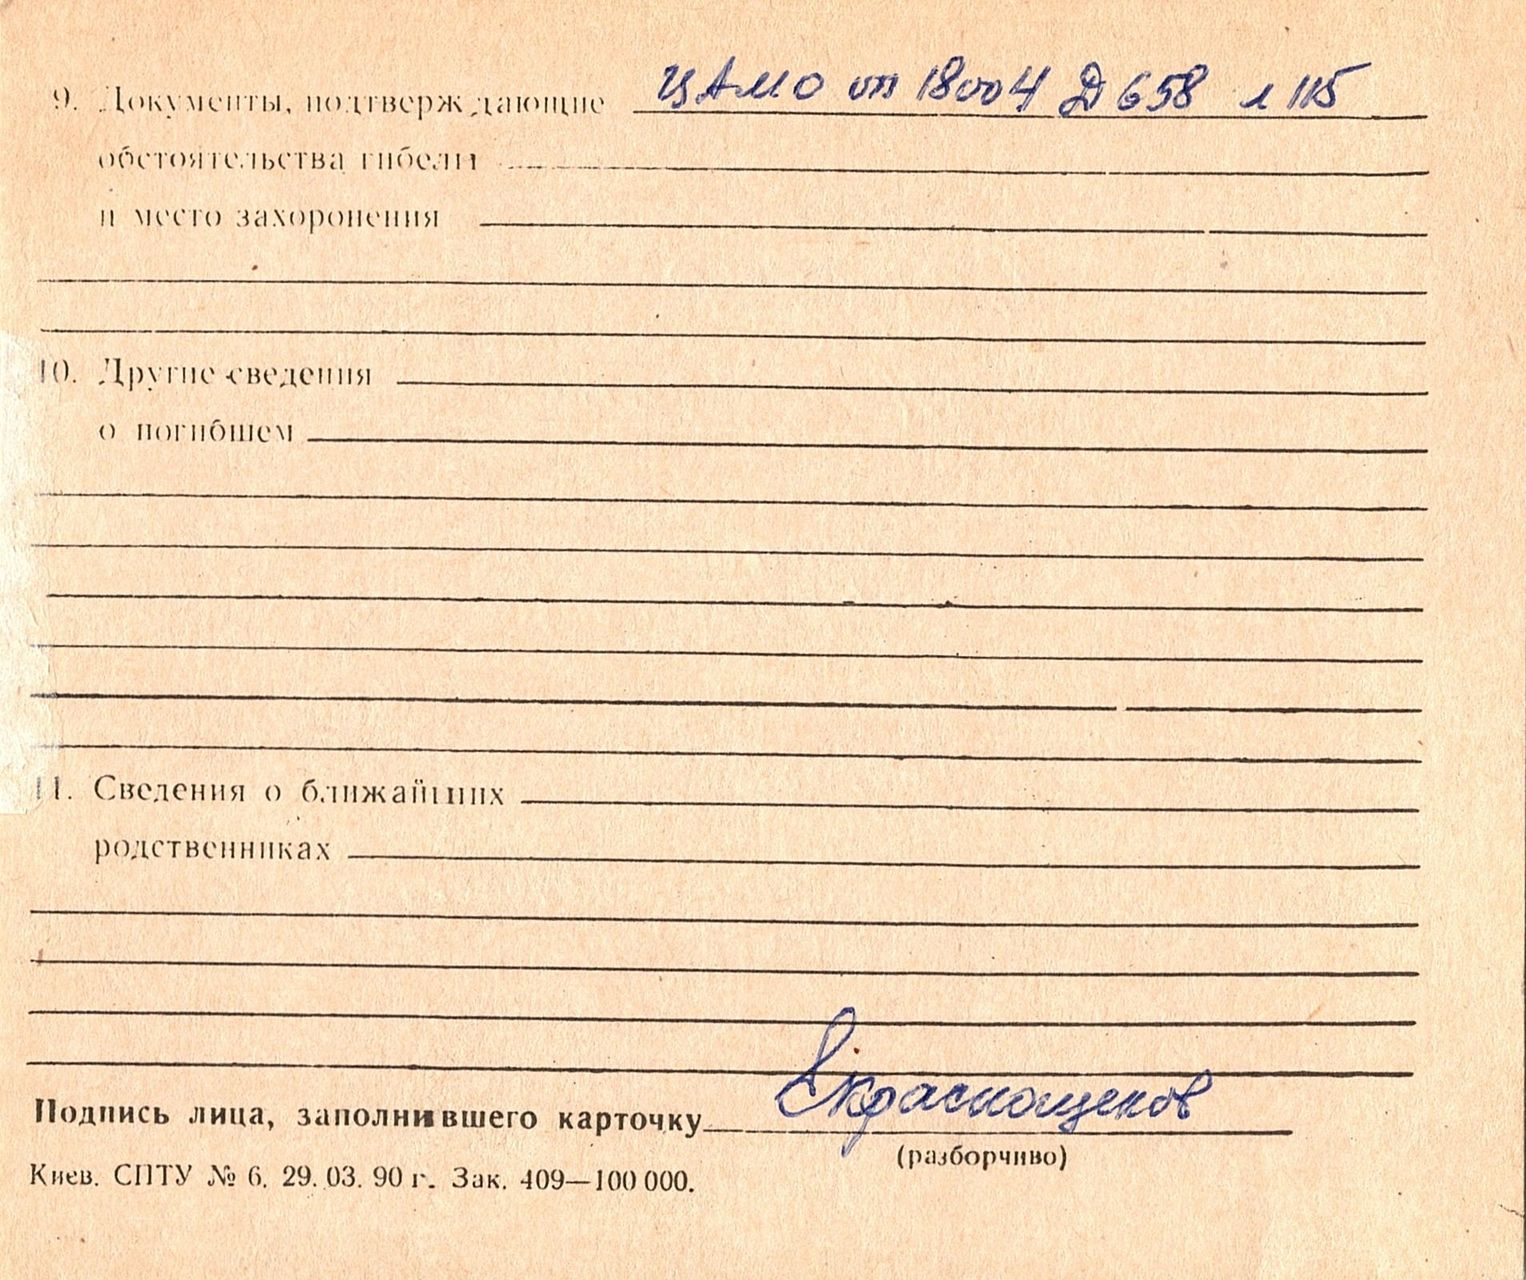 9. Документы, подтверждающие ЦАМО оп 18004 Д 658 л 115
обстоятельства гибели
и место захоронения
10. Другие сведения
о погибшем
11. Сведения о ближайших
родственниках
Подпись лица, заполнившего карточку Краснощеков
(разборчиво)
Киев. СПТУ № 6. 29. 03. 90 г. Зак. 409—100 000.